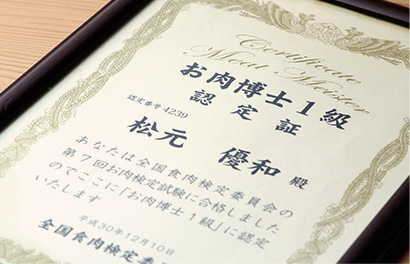 Certificate
Meat Meister
お肉博士1級
認定証
認定番号4239
松元 優和 殿
あなたは全国食肉検定委員会の
第7回お肉検定試験に合格しました
のでここに「お肉博士1級」に認定
いたします
平成30年12月10日
全国食肉検定委